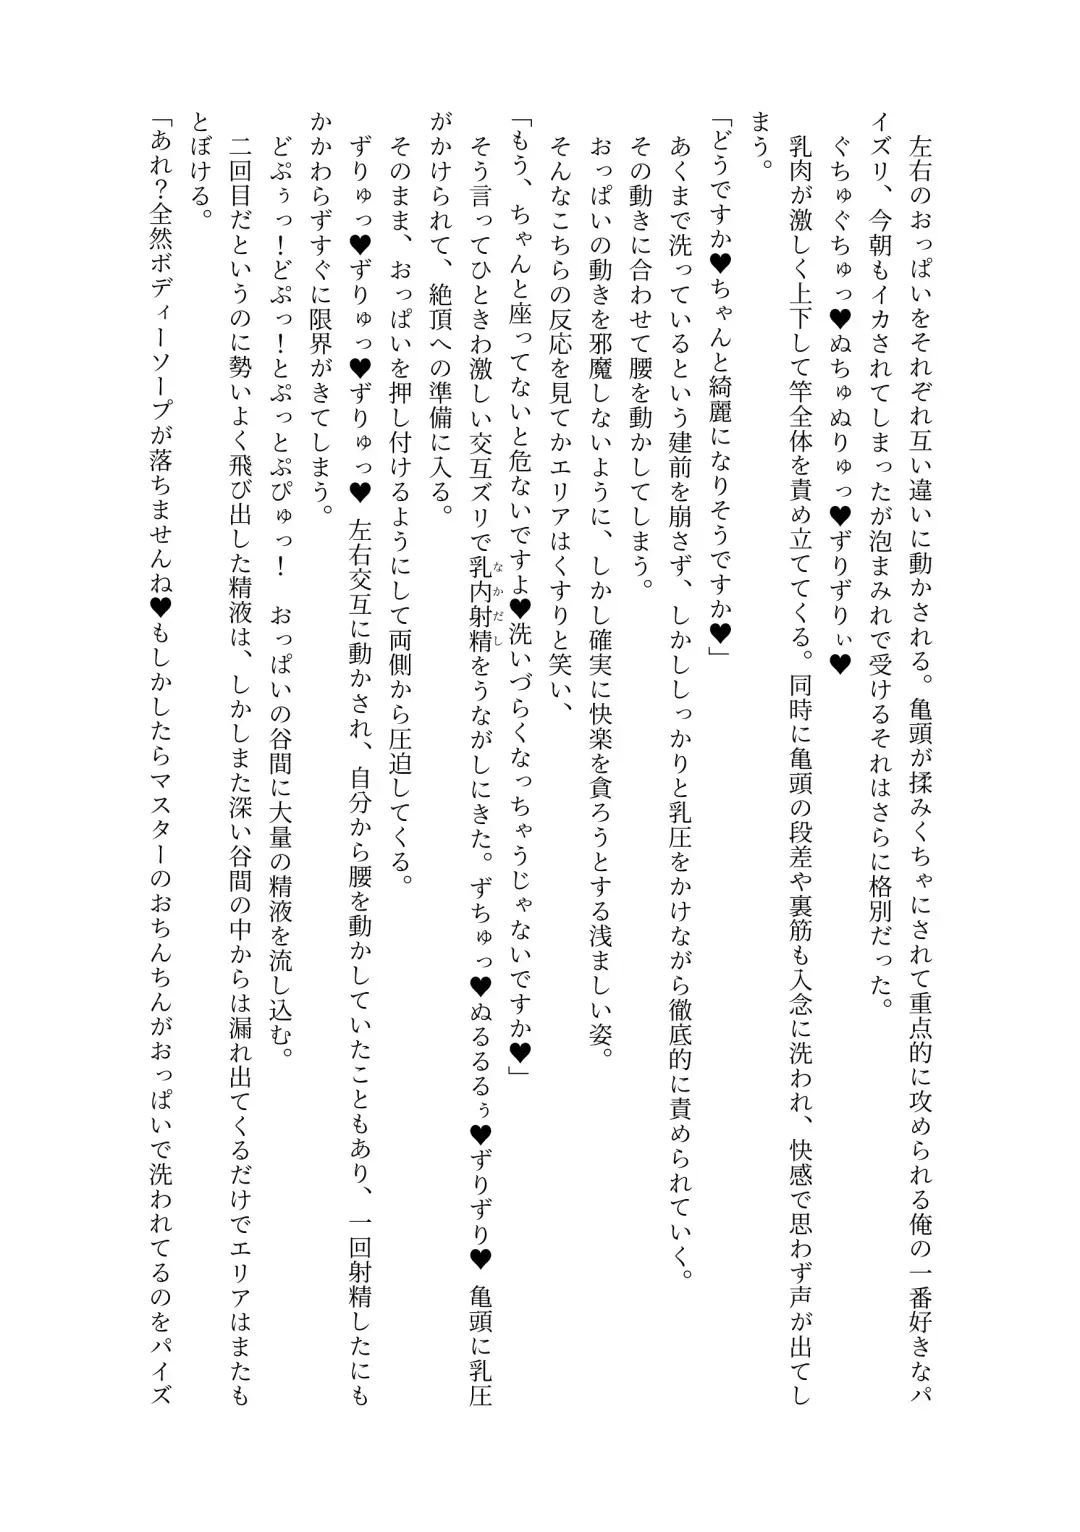 左右のおっぱいをそれぞれ互い違いに動かされる。亀頭が揉みくちゃにされて重点的に攻められる俺の一番好きなパ
イズリ、今朝もイカされてしまったが泡まみれで受けるそれはさらに格別だった。
ぐちゅぐちゅっ♥ぬちゅぬりゅっ♥ずりずりぃ♥
乳肉が激しく上下して竿全体を責め立ててくる。同時に亀頭の段差や裏筋も入念に洗われ、快感で思わず声が出てし
まう。
「どうですか♥ちゃんと綺麗になりそうですか♥」
あくまで洗っているという建前を崩さず、しかししっかりと乳圧をかけながら徹底的に責められていく。
その動きに合わせて腰を動かしてしまう。
おっぱいの動きを邪魔しないように、しかし確実に快楽を貪ろうとする浅ましい姿。
そんなこちらの反応を見てかエリアはくすりと笑い、
「もう、ちゃんと座ってないと危ないですよ♥洗いづらくなっちゃうじゃないですか♥」
そう言ってひときわ激しい交互ズリで乳内射精をうながしにきた。ずちゅっ♥ぬるるるぅ♥ずりずり♥ 亀頭に乳圧
なかだし
がかけられて、絶頂への準備に入る。
そのまま、おっぱいを押し付けるようにして両側から圧迫してくる。
ずりゅっ♥ずりゅっ♥ずりゅっ♥ 左右交互に動かされ、自分から腰を動かしていたこともあり、一回射精したにも
かかわらずすぐに限界がきてしまう。
どぷぅっ！どぷっ！とぷっとぷぴゅっ！ おっぱいの谷間に大量の精液を流し込む。
二回目だというのに勢いよく飛び出した精液は、しかしまた深い谷間の中からは漏れ出てくるだけでエリアはまたも
とぼける。
「あれ？全然ボディーソープが落ちませんね♥もしかしたらマスターのおちんちんがおっぱいで洗われてるのをパイズ